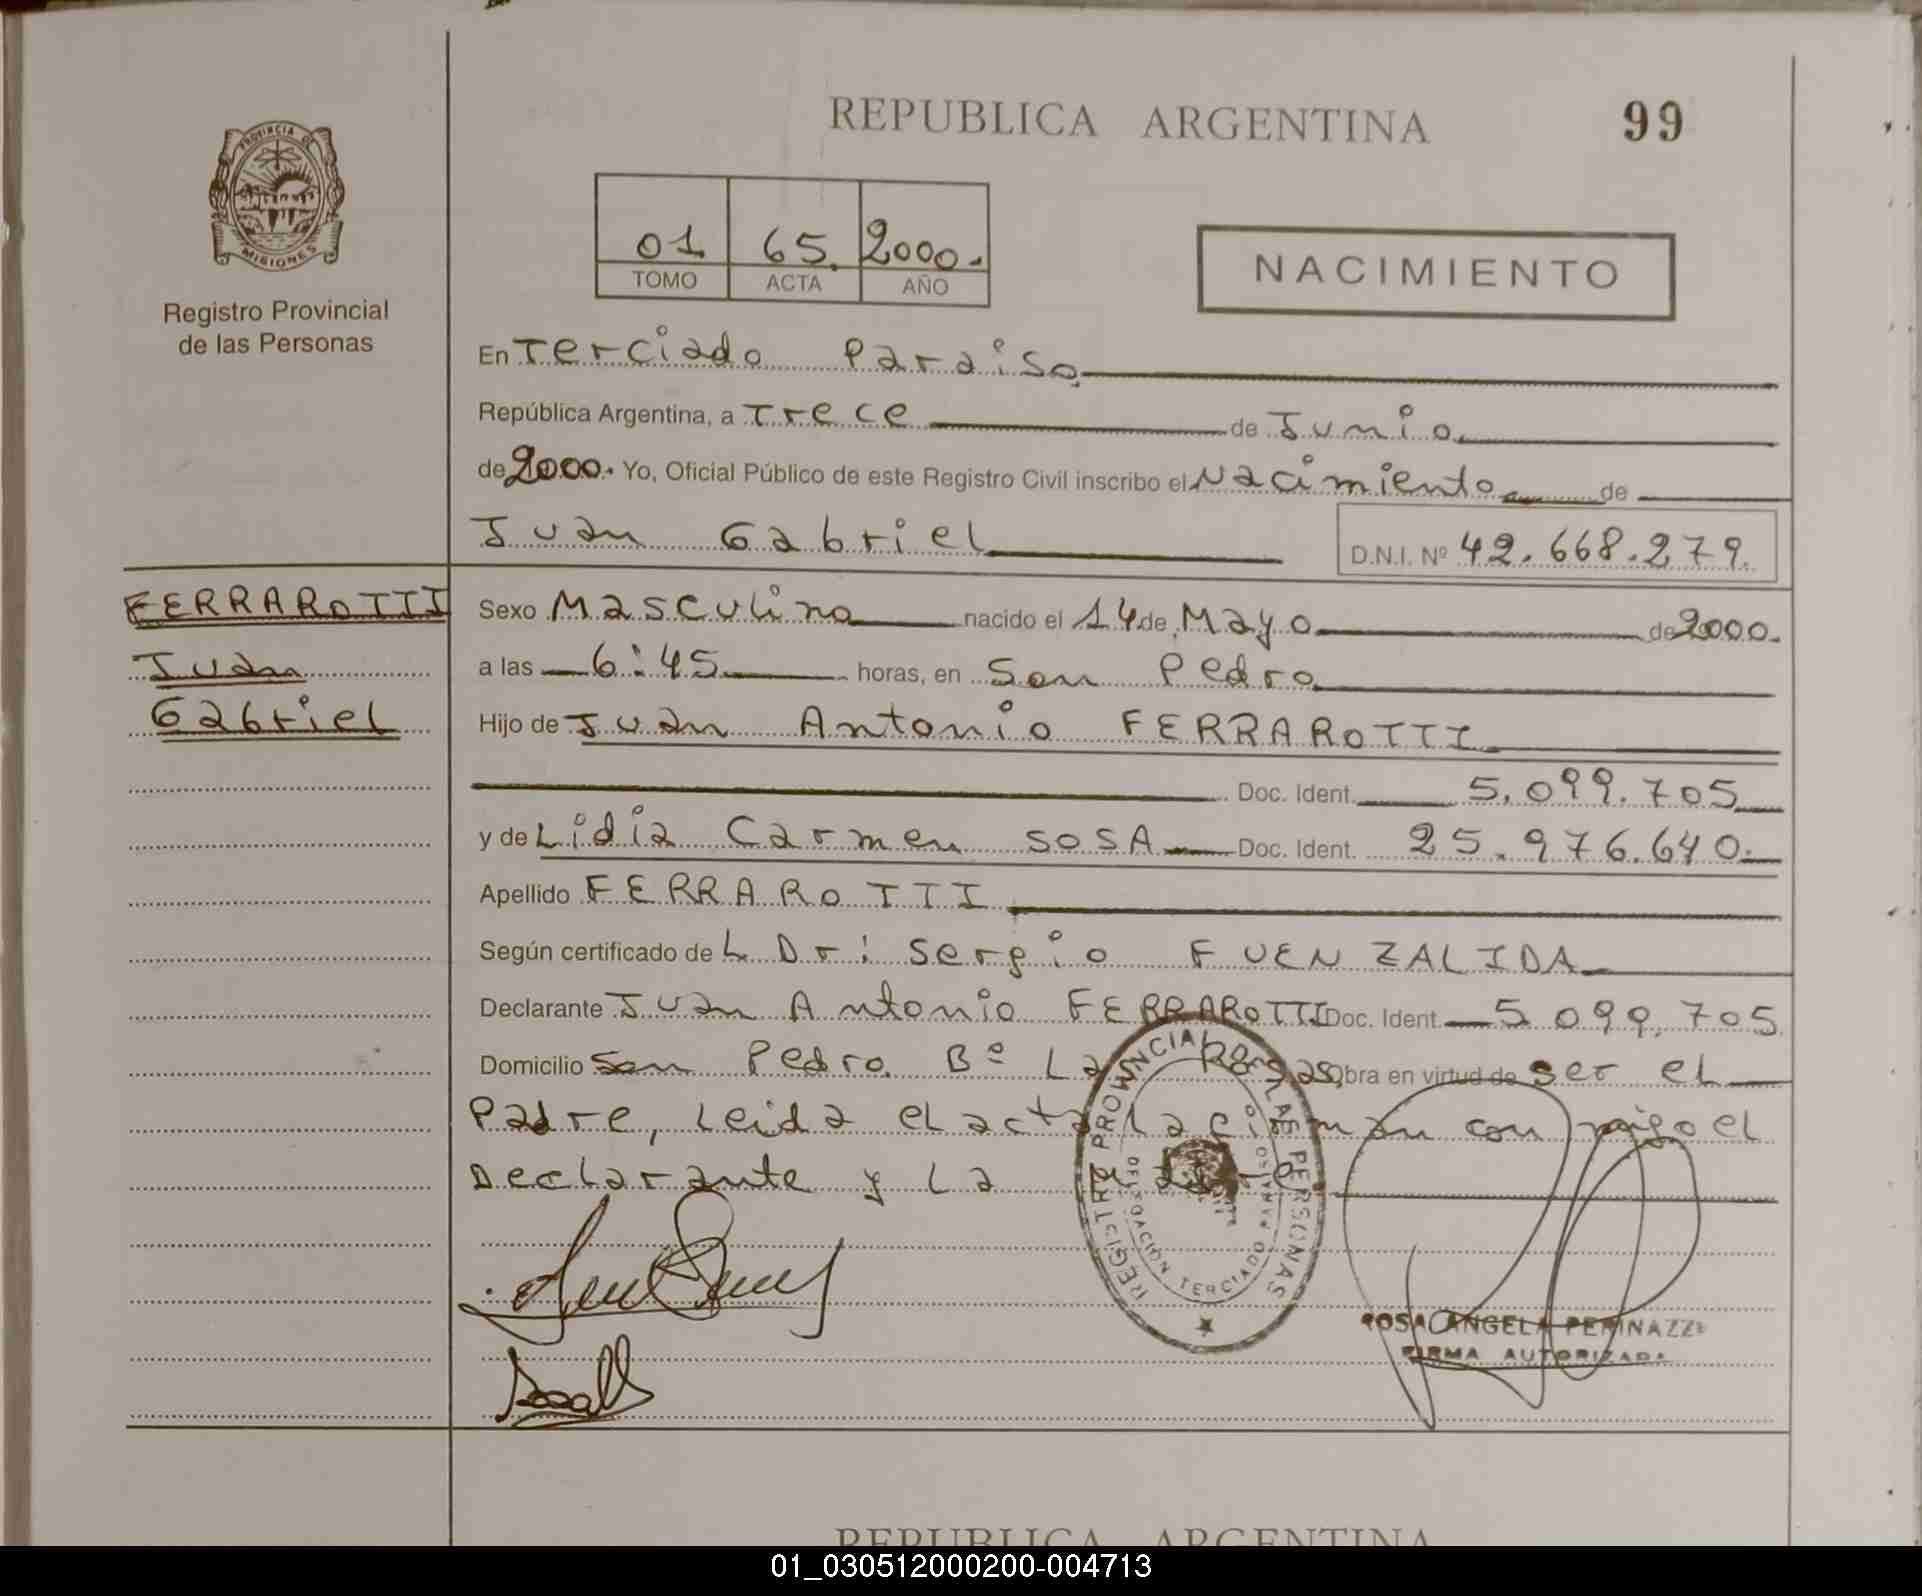 REPUBLICA ARGENTINA 99
PROVINCIA DE MISIONES
Registro Provincial
de las Personas
01 65. 2000.
TOMO ACTA AÑO
NACIMIENTO
En Terciado Paraiso
República Argentina, a Trece de Junio
de 2000. Yo, Oficial Público de este Registro Civil inscribo el Nacimiento de
Juan Gabriel D.N.I. Nº 42.668.279.
FERRAROTTI
Juan
Gabriel
Sexo Masculino nacido el 14 de Mayo de 2000.
a las 6:45 horas, en San Pedro
Hijo de Juan Antonio FERRAROTTI
Doc. Ident. 5.099.705
y de Lidia Carmen SOSA Doc. Ident. 25.976.640.
Apellido FERRAROTTI
Según certificado de L Dr: Sergio FUENZALIDA
Declarante Juan Antonio FERRAROTTI Doc. Ident. 5099.705
Domicilio San Pedro Bº Las obra en virtud de ser el
Padre, Leida el acta la firman conmigo el
Declarante y La
REGISTRO PROVINCIAL DE LAS PERSONAS
DELEGACIÓN TERCIADO PARAISO
ROSA ANGELA PERINAZZO
FIRMA AUTORIZADA
REPUBLICA ARGENTINA
01_030512000200-004713